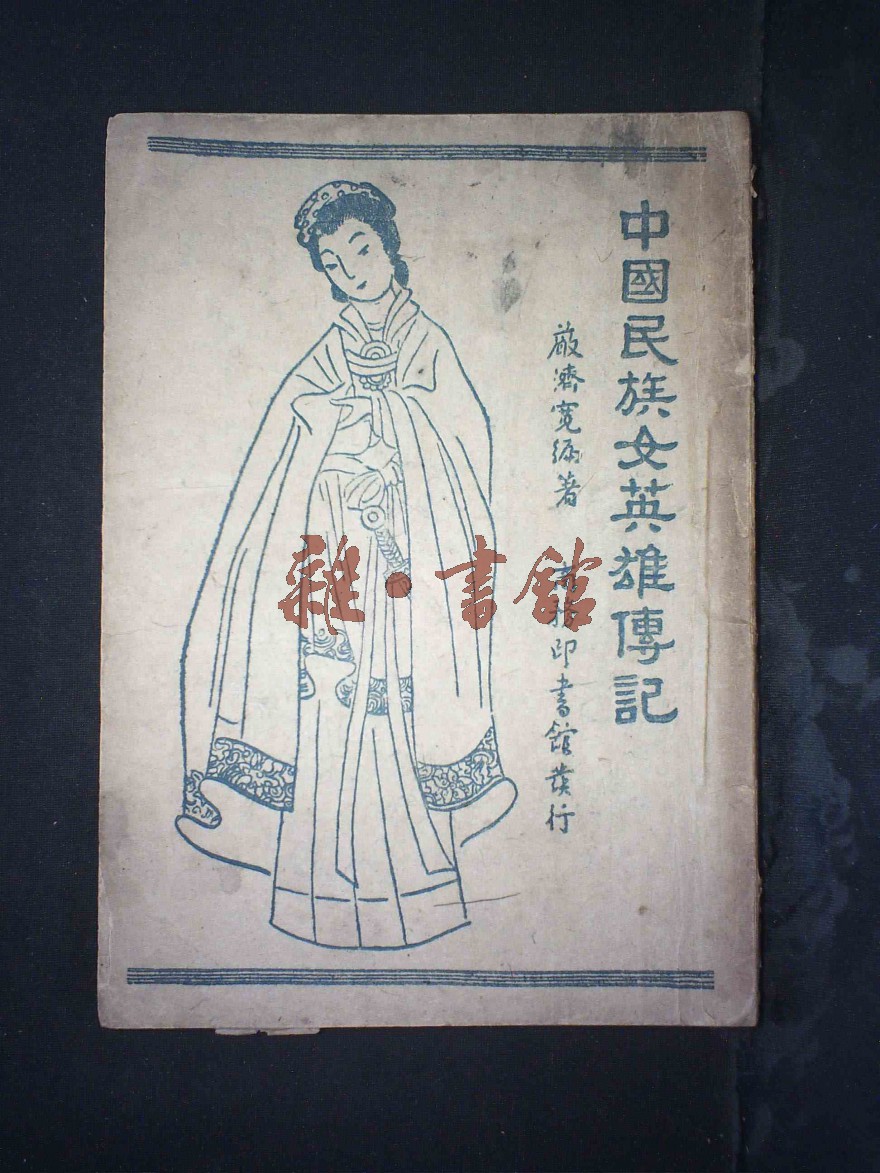 中國民族女英雄傳記
嚴濟寬編著
商務印書館發行
雜·書館